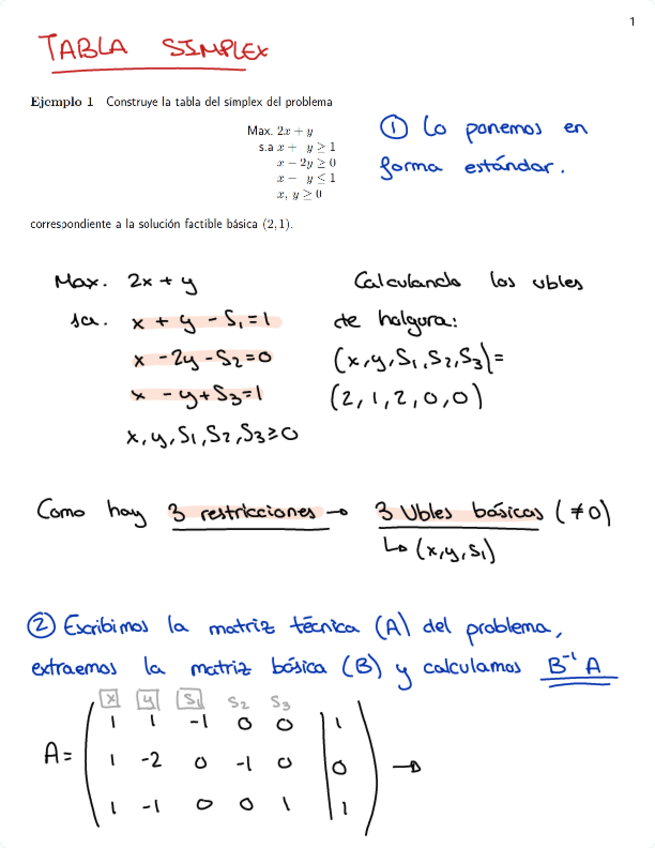 1
TABLA SIMPLEX
Ejemplo 1 Construye la tabla del simplex del problema
Max. 2x + y
s.a x + y ≥ 1
x − 2y ≥ 0
x − y ≤ 1
x, y ≥ 0
correspondiente a la solución factible básica (2, 1).
① Lo ponemos en
forma estándar.
Max. 2x + y
sa. x + y - S₁ = 1
x - 2y - S₂ = 0
x - y + S₃ = 1
x, y, S₁, S₂, S₃ ≥ 0
Calculando las vbles
de holgura:
(x, y, S₁, S₂, S₃) =
(2, 1, 2, 0, 0)
Como hay 3 restricciones → 3 Vbles básicas (≠0)
↳ (x, y, S₁)
② Escribimos la matriz técnica (A) del problema,
extraemos la matriz básica (B) y calculamos B⁻¹A
x y S₁ S₂ S₃
1 1 -1 0 0 | 1
A = 1 -2 0 -1 0 | 0 →
1 -1 0 0 1 | 1